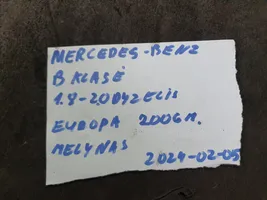 MERCEDES-BENZ
B KLASĖ
1.8-2.0 DYZELIS
EUROPA 2006 M.
MELYNAS 2024-02-05